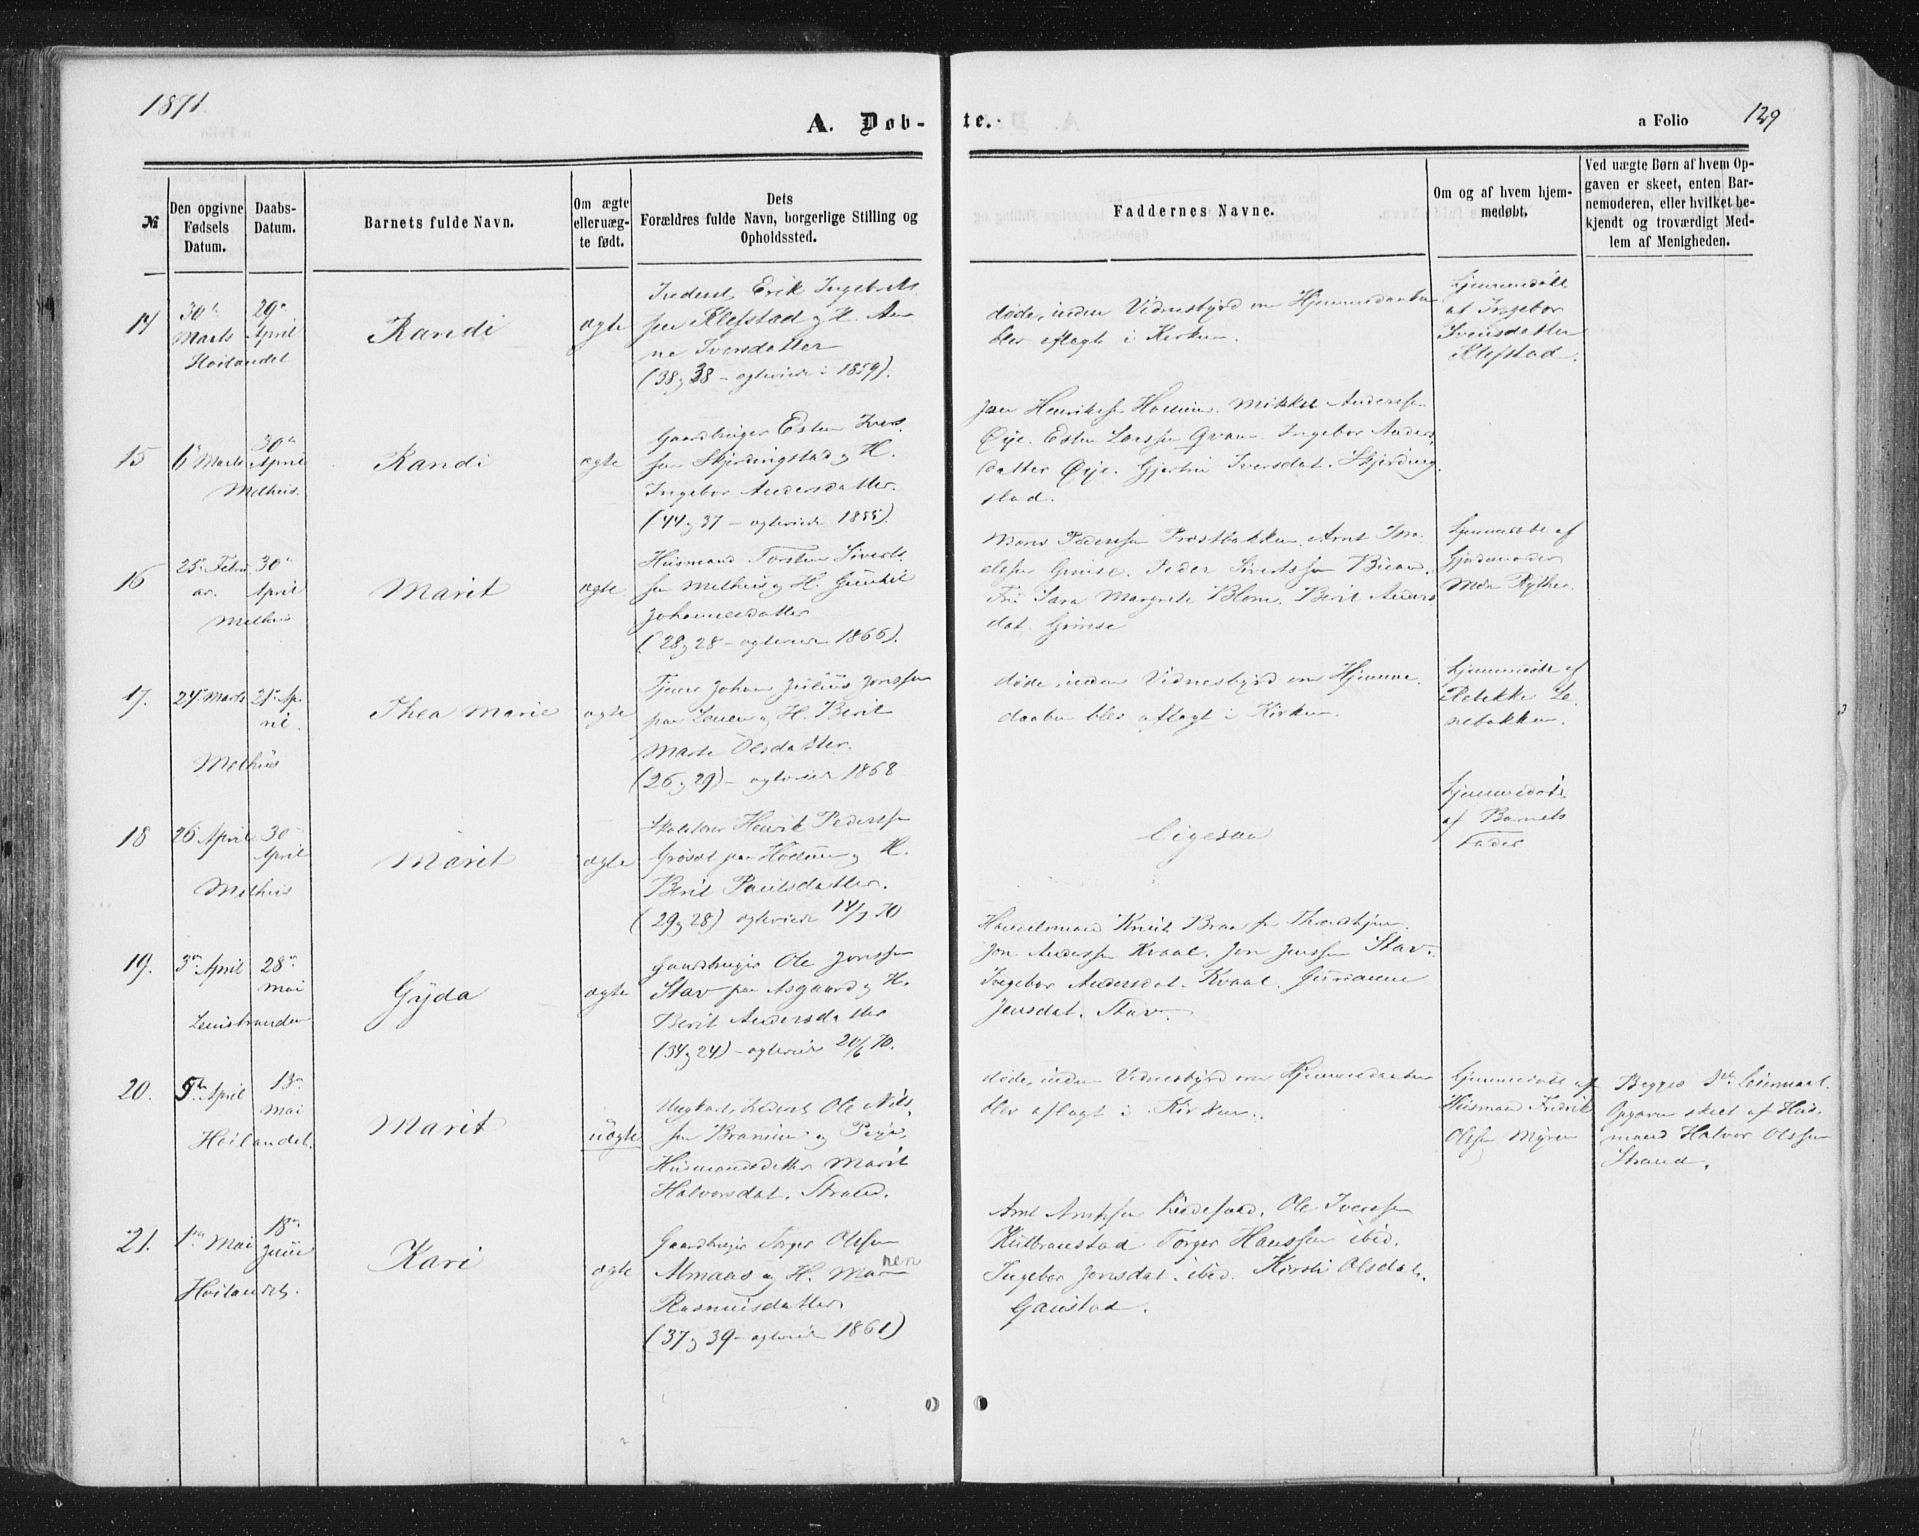 1871.
A. Døb-
te.
a Folio
129
№
Den opgivne
Fødsels
Datum.
Daabs-
Datum.
Barnets fulde Navn.
Om ægte
eller uæg-
te født.
Dets
Forældres fulde Navn, borgerlige Stilling og
Opholdssted.
Faddernes Navne.
Om og af hvem hjem-
medøbt.
Ved uægte Børn af hvem Op-
gaven er skeet, enten Bar-
nemoderen, eller hvilket be-
kjendt og troværdigt Med-
lem af Menigheden.
14
30te
Marts
29de
April
Høilandet
Randi
ægte
Inderst Erik Ingebrigts
sen Klefstad og H. An-
ne Iversdatter
(38 og 38 – ægteviede i 1859).
døde, inden Vidnesbyrd om Hjemmedaaben
blev aflagt i Kirken.
hjemmedøbt
af Ingebor
Iversdatter
Klefstad.
15
6te Marts
30te
April
Melhus.
Randi
ægte
Gaardbruger Esten Ivers
sen Skjerdingstad og H.
Ingebor Andersdatter.
(44 og 37 – ægteviede 1855).
Henriksen Mikkel Anderssen
Øye. Esten Larssen Qvam. Ingebor Anders
datter Øye. Gjertru Iversdat. Skjerding
stad.
16
25de Febru
ar.
30te
April
Melhus
Marit
ægte
Husmand Torsten Siverts
sen Melhus og H. Gunhil
Johannesdatter
(28 og 28 – ægteviede 1866).
Mons Pederssen Prestbakken. Arnt
Gimse. Peder Sivertssen
Sara Margrete Blom. Berit Anders
dat. Gimse
hjemmedøbt af
Gjordemoder
Mdm Rÿther.
17.
24de Marts
21de Ap-
ril.
Melhus
Thea Marie
ægte
Tjener Johan Julius Jonssen
paa Leuen og H. Berit
Marte Olsdatter.
(26 og 29) – ægteviede 1868
døde, inden Vidnesbyrd om Hjemme
daaben blev aflagt i Kirken.
hjemmedøbt af
Rebekke Le-
nebakken.
18
26 April
30te
April
Melhus
Marit
ægte
Skolelærer Henrik Pederssen
Grøset paa og H.
Berit Paulsdatter.
(29 og 28) ægteviede 14/7 70
ligesaa
hjemmedøbt
af Barnets
Fader
19.
3die April
28de
Mai
Leinstranden
Gÿda
ægte
Gaardbruger Ole Jonssen
Stav paa Asgaard og H.
Berit Andersdatter
(34 og 24) – ægteviede 20/6 70.
Handelsmand Knut Braa
Jon Anderssen Kvaal. Jon Jenssen Stav.
Ingebor Andersdat. Kvaal. Gurianne
Jensdat. Stav.
20.
5te April
13de
Mai
Høilandet.
Marit
uægte
Ungkarl, Inderst Ole Nils-
sen og Pige,
Husmandsdatter Marit
Halvorsdat. Strand.
døde, inden Vidnesbyrd om Hjemmedaaben
blev aflagt i Kirken.
hjemmedøbt af
Husmand Fredrik
Olssen Mÿren
Begges 1ste Leiermaal.
Opgaven skeet af Hus-
mand Halvor Olssen
Strand.
21.
1ste Mai
18de
Juni
Høilandet.
Kari
ægte
Gaardbruger Torger Olssen
Almaas og H. Maren
Rasmusdatter
(37 og 39 – ægteviede 1861)
Arnt Arntssen Ole Iverssen
Kulbranstad Torger Hanssen ibid.
Ingebor Jonsdat. ibid. Kirsti Olsdat.
Gaustad.